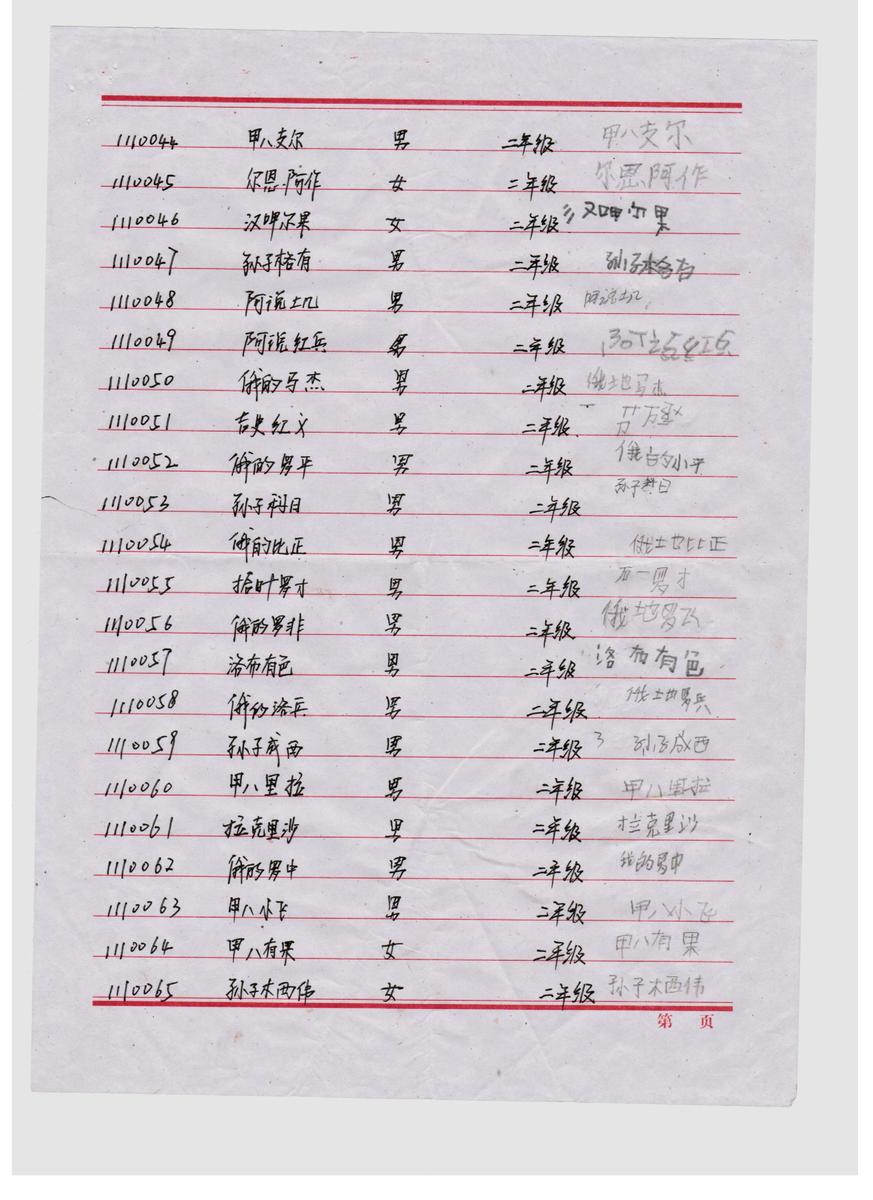 1110044 甲八支尔 男 二年级 甲八支尔
1110045 尔恩阿作 女 二年级 尔恩阿作
1110046 汉呷尔果 女 二年级 汉呷尔果
1110047 孙子格有 男 二年级 孙子格有
1110048 阿说土几 男 二年级 阿说土几
1110049 阿说红兵 男 二年级
1110050 俄的马杰 男 二年级 俄土地马杰
1110051 吉史红义 男 二年级
1110052 俄的罗平 男 二年级 俄的小平
1110053 孙子科日 男 二年级 孙子科日
1110054 俄的比正 男 二年级 俄土地比正
1110055 拾叶罗才 男 二年级 罗才
1110056 俄的罗非 男 二年级 俄地罗飞
1110057 洛布有色 男 二年级 洛布有色
1110058 俄的洛兵 男 二年级 俄土地罗兵
1110059 孙子成西 男 二年级 3 孙子成西
1110060 甲八里拉 男 二年级 甲八里拉
1110061 拉克里沙 男 二年级 拉克里沙
1110062 俄的罗中 男 二年级 的罗中
1110063 甲八小飞 男 二年级 甲八小飞
1110064 甲八有果 女 二年级 甲八有果
1110065 孙子木西伟 女 二年级 孙子木西伟
第 页